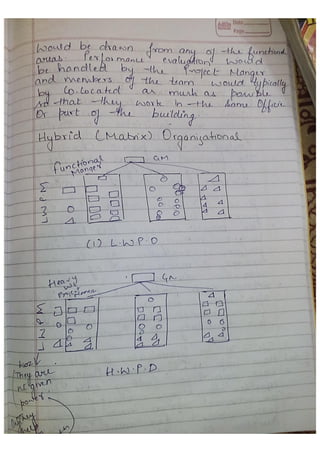 Would be drawn from any of the functional
areas. Performance evaluation would
be handled by the Project Manger
and members of the team would typically
by Co-located as much as possible
so that they work in the same Office
Or part of the building.
Hybrid (Matrix) Organizational
Functional
Manger
GM
(1) L.W.P.O
Heavy
GM
H.W.P.D
They are
not given
power